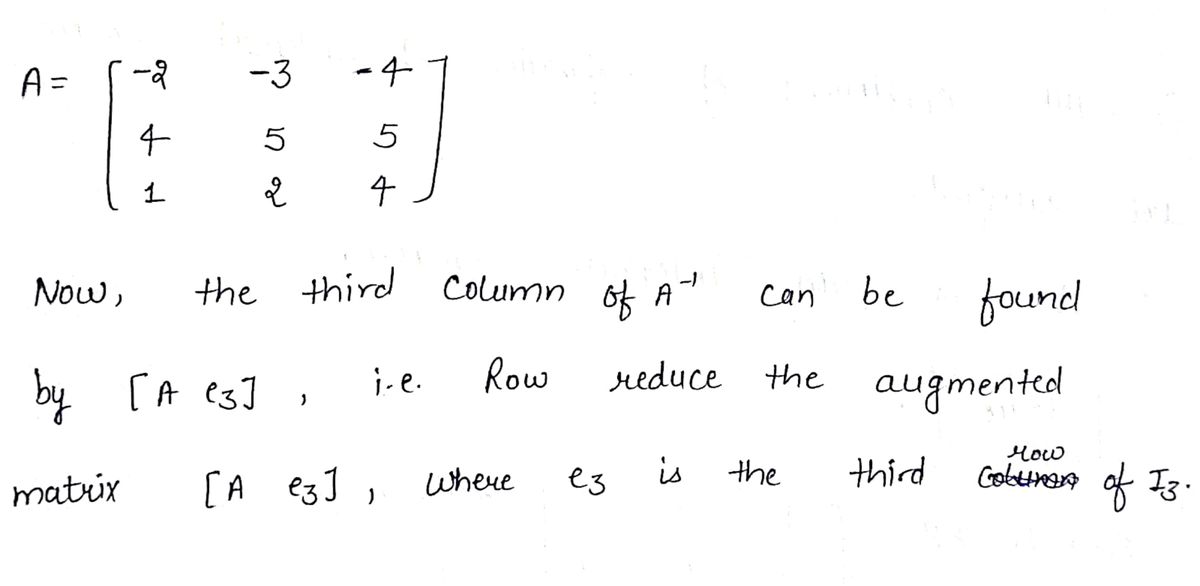 A = [ -2 -3 -4
4 5 5
1 2 4 ]
Now, the third Column of A⁻¹ can be found
by [A e₃] , i.e. Row reduce the augmented
matrix [A e₃] , where e₃ is the third row of I₃.